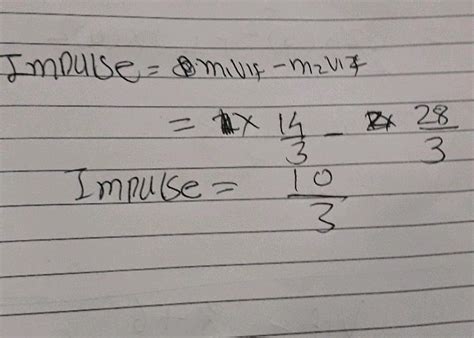 Impulse = m₁v₁f - m₂v₁f
= 1 × 14/3 - 2 × 28/3
Impulse = 10/3